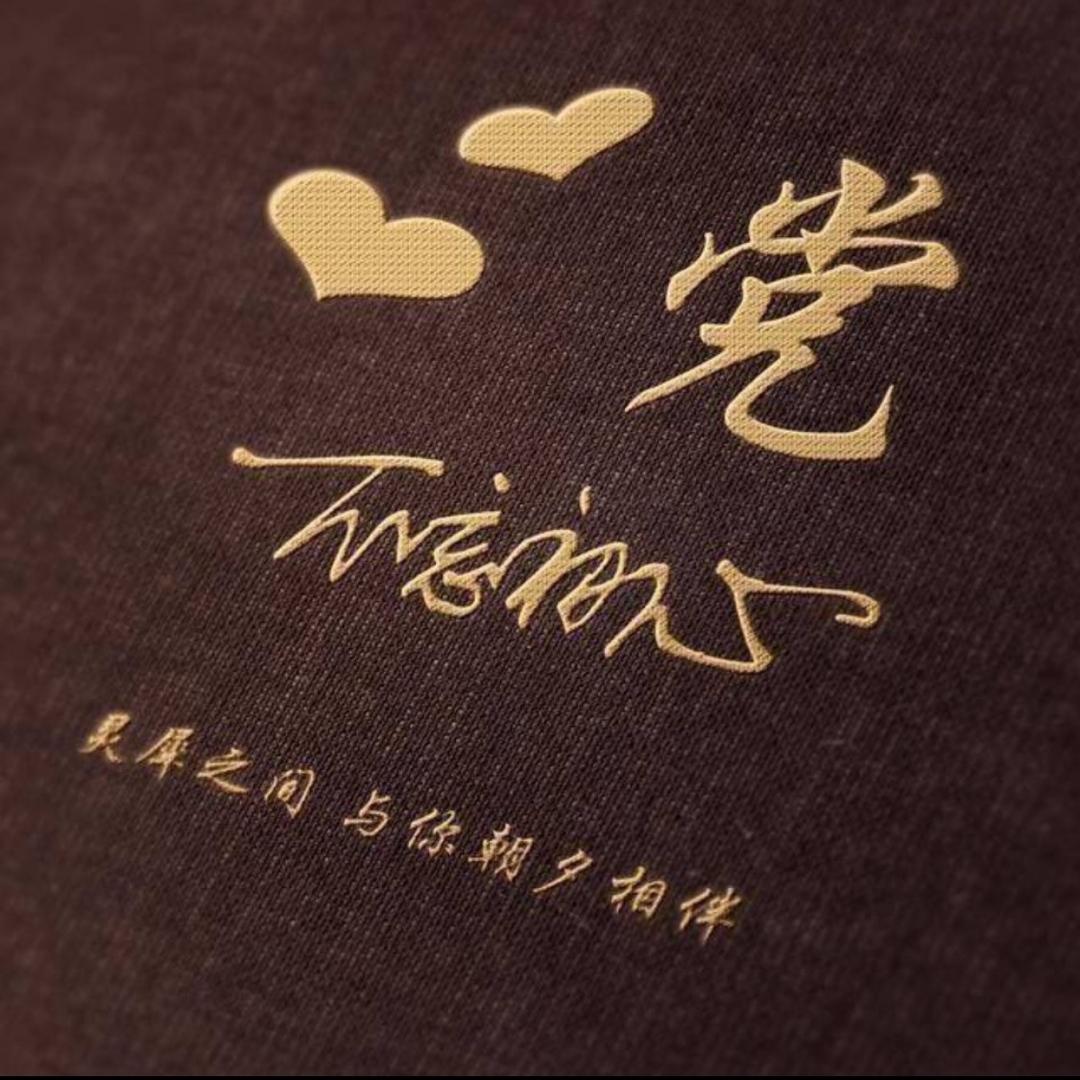 党
不忘初心
灵犀之间 与你朝夕相伴